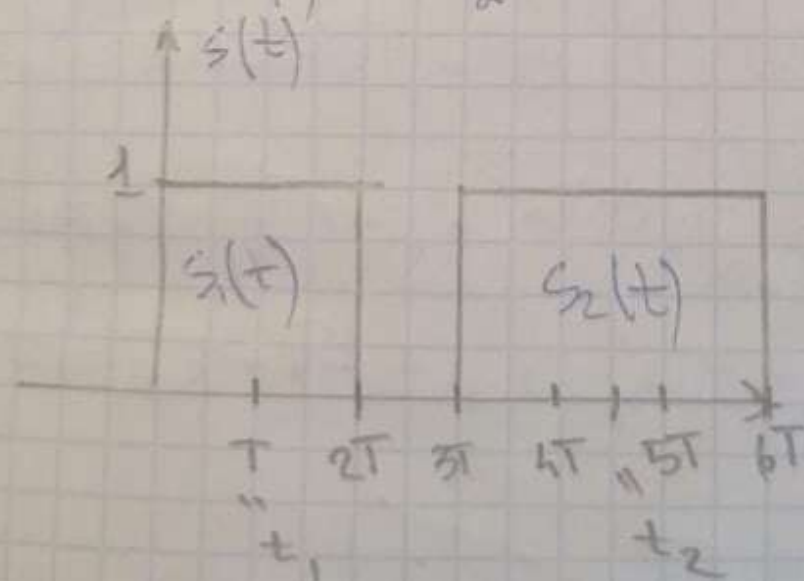 s(t)
1
S₁(t) S₂(t)
T 2T 3T 4T 5T 6T
" "
t₁ t₂